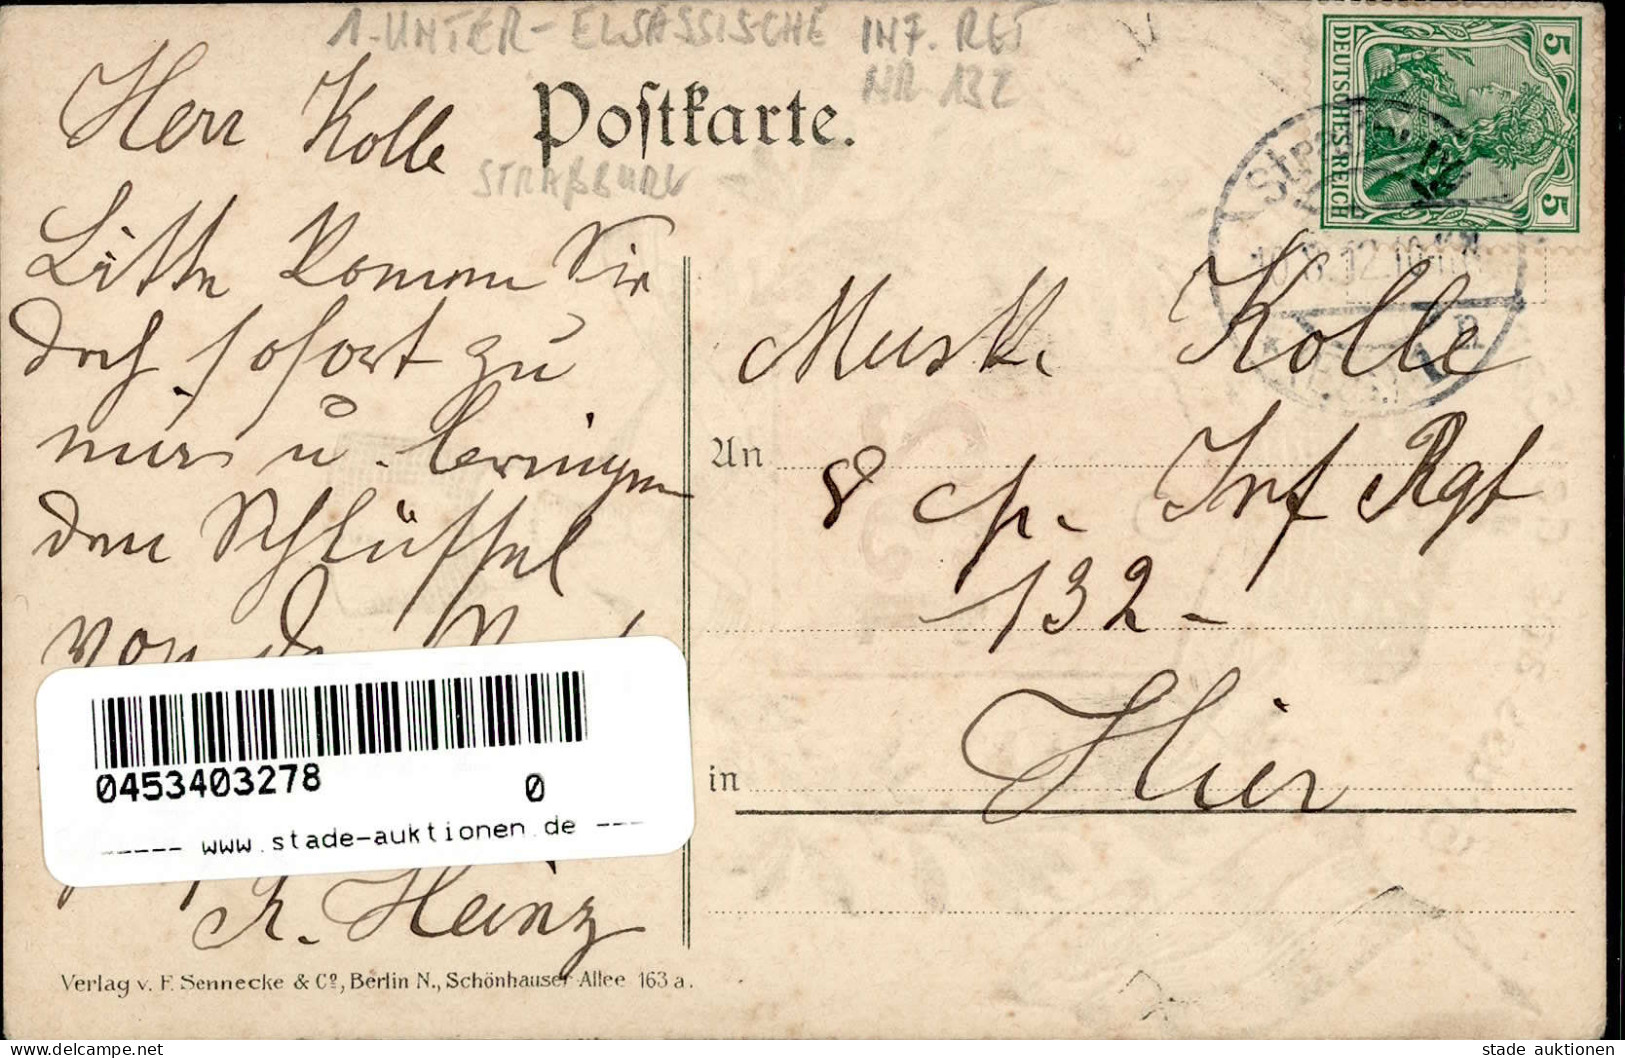 1. UNTER-ELSÄSSISCHE INF. REG
NR. 132
Postkarte.
STRAßBURG
DEUTSCHES REICH
5 5
Herr Kolle
Bitte kommen Sie
doch sofort zu
mir u. bringen
den Schlüssel
von der
R. Heinz
Musk. Kolle
An 8 Cp. Inf Rgt
132-
in Hier
0453403278 0
----- www.stade-auktionen.de ---
Verlag v. F. Sennecke & Co, Berlin N., Schönhauser Allee 163 a.
stade auktionen
stade auktionen